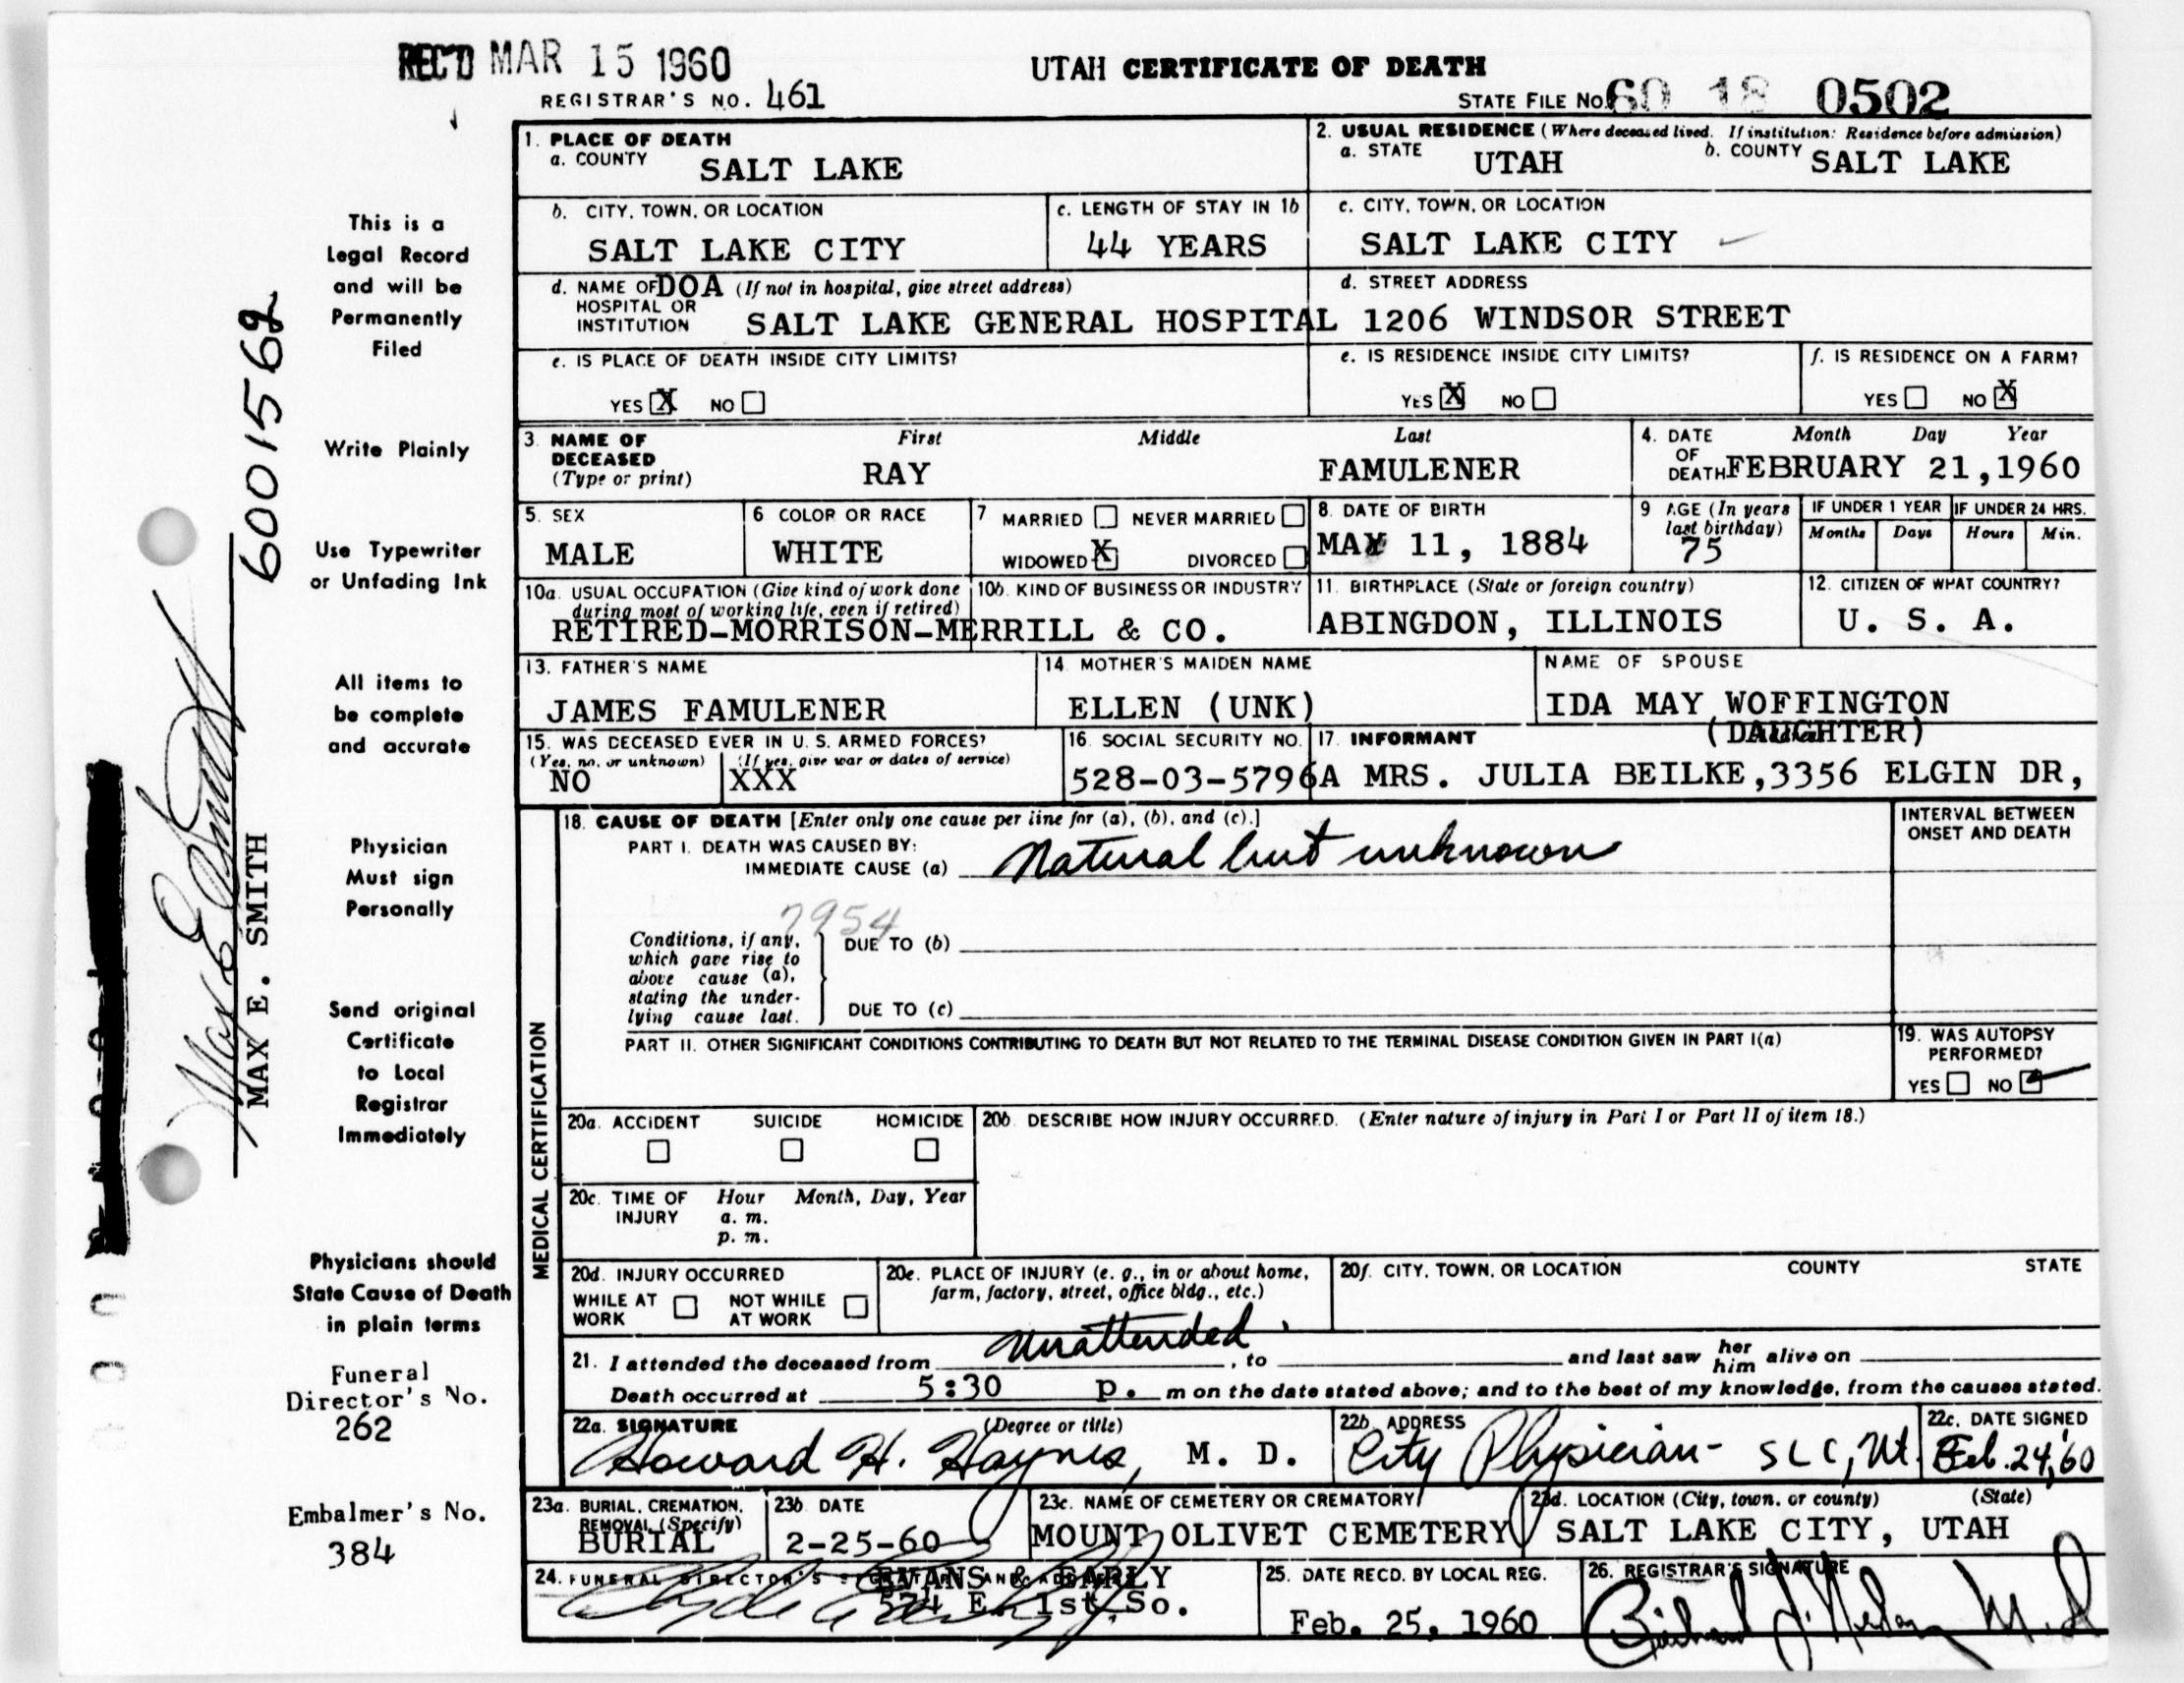 REC'D MAR 15 1960
UTAH CERTIFICATE OF DEATH
REGISTRAR'S NO. 461
STATE FILE NO. 60 18 0502
1. PLACE OF DEATH
a. COUNTY SALT LAKE
2. USUAL RESIDENCE (Where deceased lived. If institution: Residence before admission)
a. STATE UTAH b. COUNTY SALT LAKE
b. CITY, TOWN, OR LOCATION
SALT LAKE CITY
c. LENGTH OF STAY IN 1b
44 YEARS
c. CITY, TOWN, OR LOCATION
SALT LAKE CITY
d. NAME OF DOA (If not in hospital, give street address)
HOSPITAL OR
INSTITUTION SALT LAKE GENERAL HOSPITAL
d. STREET ADDRESS
1206 WINDSOR STREET
e. IS PLACE OF DEATH INSIDE CITY LIMITS?
YES X NO
e. IS RESIDENCE INSIDE CITY LIMITS?
YES X NO
f. IS RESIDENCE ON A FARM?
YES NO X
3. NAME OF DECEASED (Type or print)
First Middle Last
RAY FAMULENER
4. DATE OF DEATH Month Day Year
FEBRUARY 21,1960
5. SEX
MALE
6 COLOR OR RACE
WHITE
7 MARRIED NEVER MARRIED
WIDOWED X DIVORCED
8. DATE OF BIRTH
MAY 11, 1884
9 AGE (In years last birthday)
75
IF UNDER 1 YEAR IF UNDER 24 HRS.
Months Days Hours Min.
10a. USUAL OCCUPATION (Give kind of work done during most of working life, even if retired)
10b. KIND OF BUSINESS OR INDUSTRY
RETIRED-MORRISON-MERRILL & CO.
11. BIRTHPLACE (State or foreign country)
ABINGDON, ILLINOIS
12. CITIZEN OF WHAT COUNTRY?
U. S. A.
13. FATHER'S NAME
JAMES FAMULENER
14. MOTHER'S MAIDEN NAME
ELLEN (UNK)
NAME OF SPOUSE
IDA MAY WOFFINGTON
15. WAS DECEASED EVER IN U. S. ARMED FORCES?
(Yes, no, or unknown) (If yes, give war or dates of service)
NO XXX
16. SOCIAL SECURITY NO.
528-03-5796A
17. INFORMANT (DAUGHTER)
MRS. JULIA BEILKE,3356 ELGIN DR,
MEDICAL CERTIFICATION
18. CAUSE OF DEATH [Enter only one cause per line for (a), (b), and (c).]
INTERVAL BETWEEN
ONSET AND DEATH
PART I. DEATH WAS CAUSED BY:
IMMEDIATE CAUSE (a) Natural but unknown
7954
Conditions, if any,
which gave rise to
above cause (a),
stating the under-
lying cause last.
DUE TO (b)
DUE TO (c)
PART II. OTHER SIGNIFICANT CONDITIONS CONTRIBUTING TO DEATH BUT NOT RELATED TO THE TERMINAL DISEASE CONDITION GIVEN IN PART I(a)
19. WAS AUTOPSY
PERFORMED?
YES NO
20a. ACCIDENT SUICIDE HOMICIDE
20b DESCRIBE HOW INJURY OCCURRED. (Enter nature of injury in Part I or Part II of item 18.)
20c. TIME OF INJURY Hour Month, Day, Year
a. m.
p. m.
20d. INJURY OCCURRED
WHILE AT WORK NOT WHILE AT WORK
20e. PLACE OF INJURY (e. g., in or about home,
farm, factory, street, office bldg., etc.)
20f. CITY, TOWN, OR LOCATION COUNTY STATE
21. I attended the deceased from Unattended, to and last saw her him alive on
Death occurred at 5:30 p. m on the date stated above; and to the best of my knowledge, from the causes stated.
22a. SIGNATURE (Degree or title)
Howard H. Haynes, M. D.
22b. ADDRESS
City Physician - SLC, Ut.
22c. DATE SIGNED
Feb. 24, 60
23a. BURIAL, CREMATION,
REMOVAL (Specify)
BURIAL
23b DATE
2-25-60
23c. NAME OF CEMETERY OR CREMATORY
MOUNT OLIVET CEMETERY
23d. LOCATION (City, town, or county) (State)
SALT LAKE CITY, UTAH
24. FUNERAL DIRECTOR'S SIGNATURE AND ADDRESS
EVANS & EARLY
574 E. 1st So.
25. DATE RECD. BY LOCAL REG.
Feb. 25, 1960
26. REGISTRAR'S SIGNATURE
This is a
Legal Record
and will be
Permanently
Filed
Write Plainly
Use Typewriter
or Unfading Ink
All items to
be complete
and accurate
Physician
Must sign
Personally
Send original
Certificate
to Local
Registrar
Immediately
Physicians should
State Cause of Death
in plain terms
Funeral
Director's No.
262
Embalmer's No.
384
6001562
Max E. Smith
MAX E. SMITH